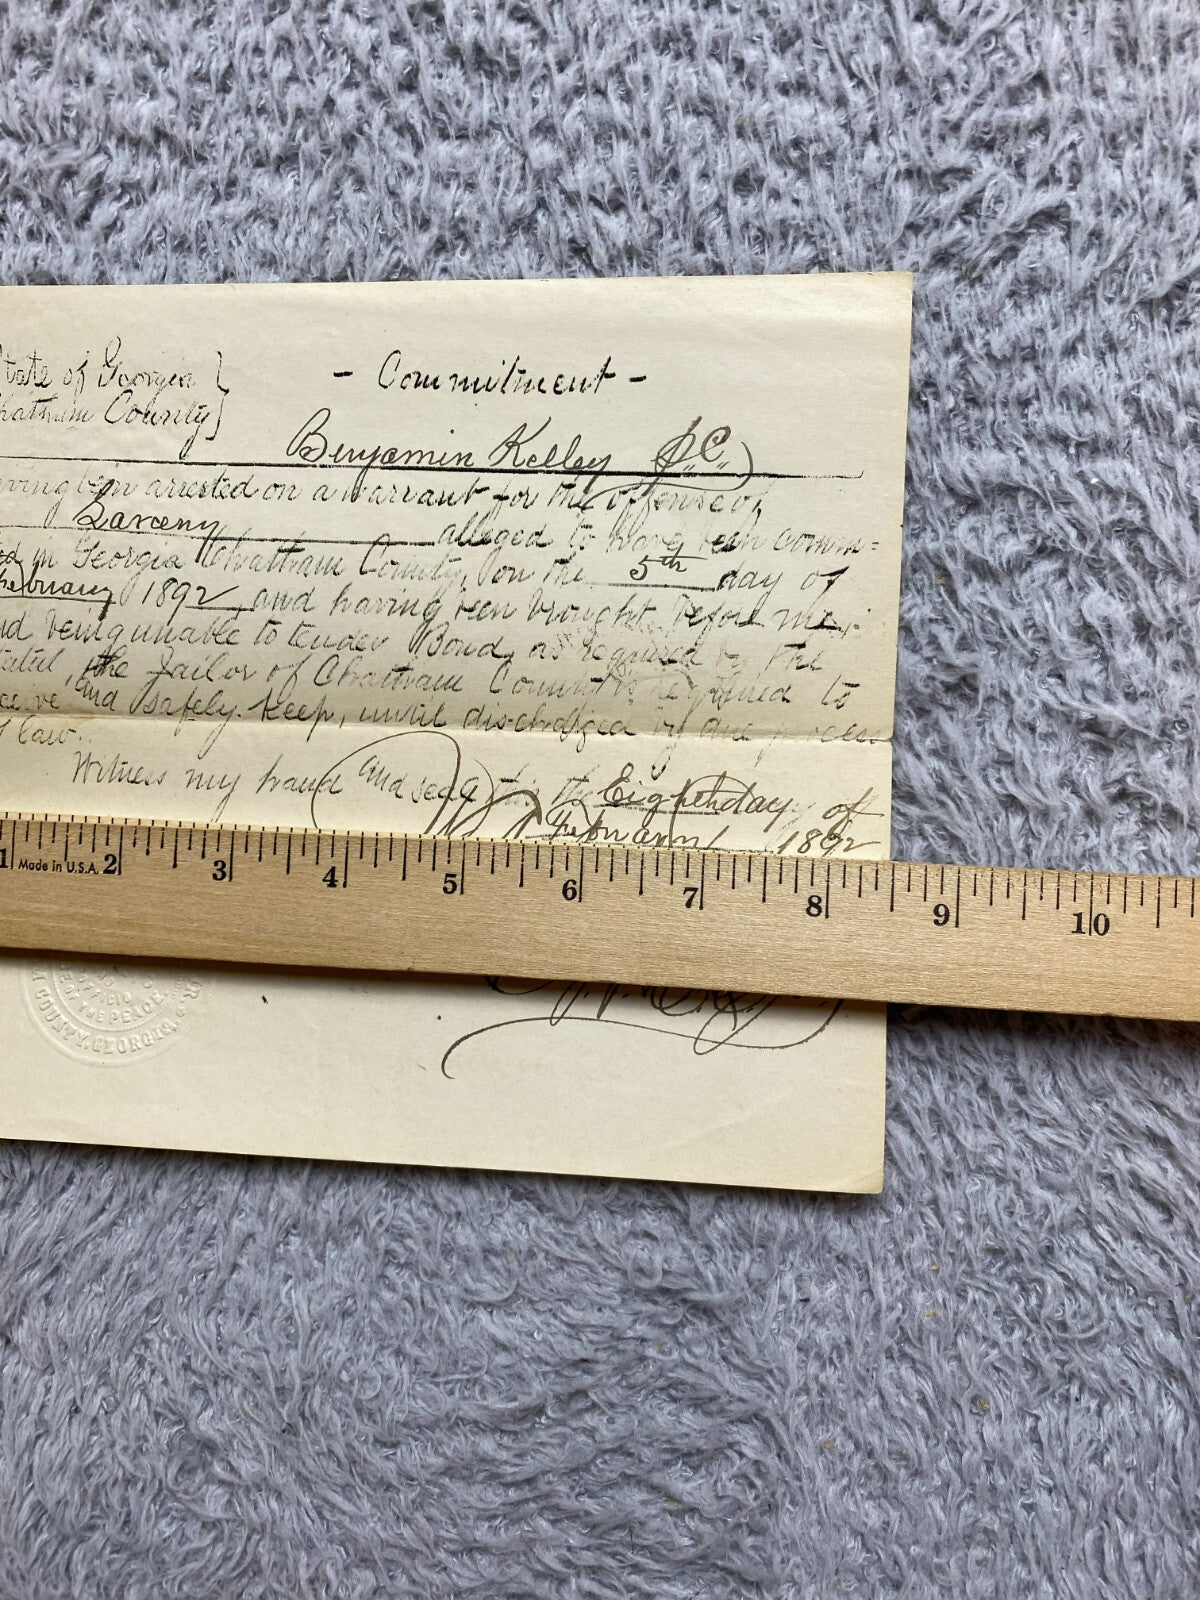 tate of Georgia }
hatham County }
- Commitment -
Benjamin Kelley
aving been arrested on a warrant for the offense of
Larceny alleged to have been comm=
ed in Georgia Chatham County, on the 5th day of
February 1892, and having been brought before me,
nd being unable to tender Bond, as required by the
the Jailor of Chatham County is required to
ceive and safely keep, until discharged by due process
f law.
Witness my hand and seal this the Eighth day of
February 1892
1 Made in U.S.A. 2 3 4 5 6 7 8 9 10
OF THE PEACE
COUNTY, GEORGIA